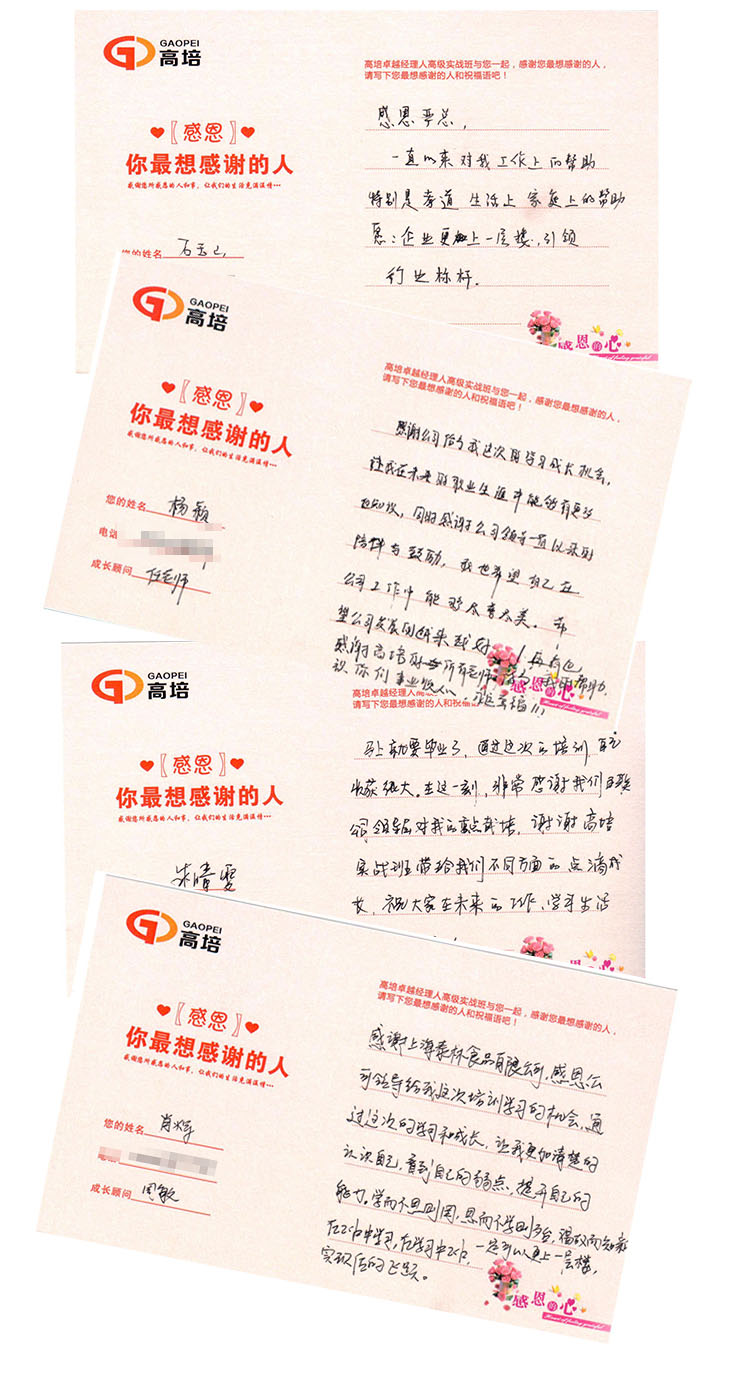 GAOPEI
高培
〖感恩〗
你最想感谢的人
感谢您所感恩的人和事，让我们的生活充满温情…
您的姓名
高培卓越经理人高级实战班与您一起，感谢您最想感谢的人，
请写下您最想感谢的人和祝福语吧！
感恩严总，
一直以来对我工作上的帮助
特别是孝道 生活上 家庭上的帮助
愿：企业更加上一层楼，引领
行业标杆。
感恩的心
GAOPEI
高培
〖感恩〗
你最想感谢的人
感谢您所感恩的人和事，让我们的生活充满温情…
您的姓名 杨颖
电话
成长顾问 任老师
高培卓越经理人高级实战班与您一起，感谢您最想感谢的人，
请写下您最想感谢的人和祝福语吧！
感谢公司给予我这次的学习成长机会，
让我在未来的职业生涯中能够有更
同时感谢公司领导一直以来的
陪伴与鼓励，我也希望自己在
公司工作中能够尽善尽美。希
望公司发展的越来越好！再有也
感谢高培的所有老师 帮助
祝你们事业 幸福!!!
感恩的心
Heart of feeling grateful
GAOPEI
高培
〖感恩〗
你最想感谢的人
感谢您所感恩的人和事，让我们的生活充满温情…
朱晴雯
高培卓越经理人高级
请写下您最想感谢的人和祝福
马上就要毕业了，通过这次的培训，自己
收获很大。在这一刻，非常感谢我们
公司领导层对我的重点栽培，谢谢高培
实战班带给我们不同方面的点滴成
长，祝大家在未来的工作、学习生活
GAOPEI
高培
〖感恩〗
你最想感谢的人
感谢您所感恩的人和事，让我们的生活充满温情…
您的姓名 肖辉
成长顾问 周敏
高培卓越经理人高级实战班与您一起，感谢您最想感谢的人，
请写下您最想感谢的人和祝福语吧！
感谢上海泰林食品有限公司，感恩公
司领导给我这次培训学习的机会，通
过这次的学习和成长，让我更加清楚的
认识自己，看到自己的弱点，提升自己的
能力。学而不思则罔，思而不学则殆，温故而知新
在工作中学习，在学习中工作，一定可以更上一层楼，
实现质的飞跃。
感恩的心
Heart of feeling grateful